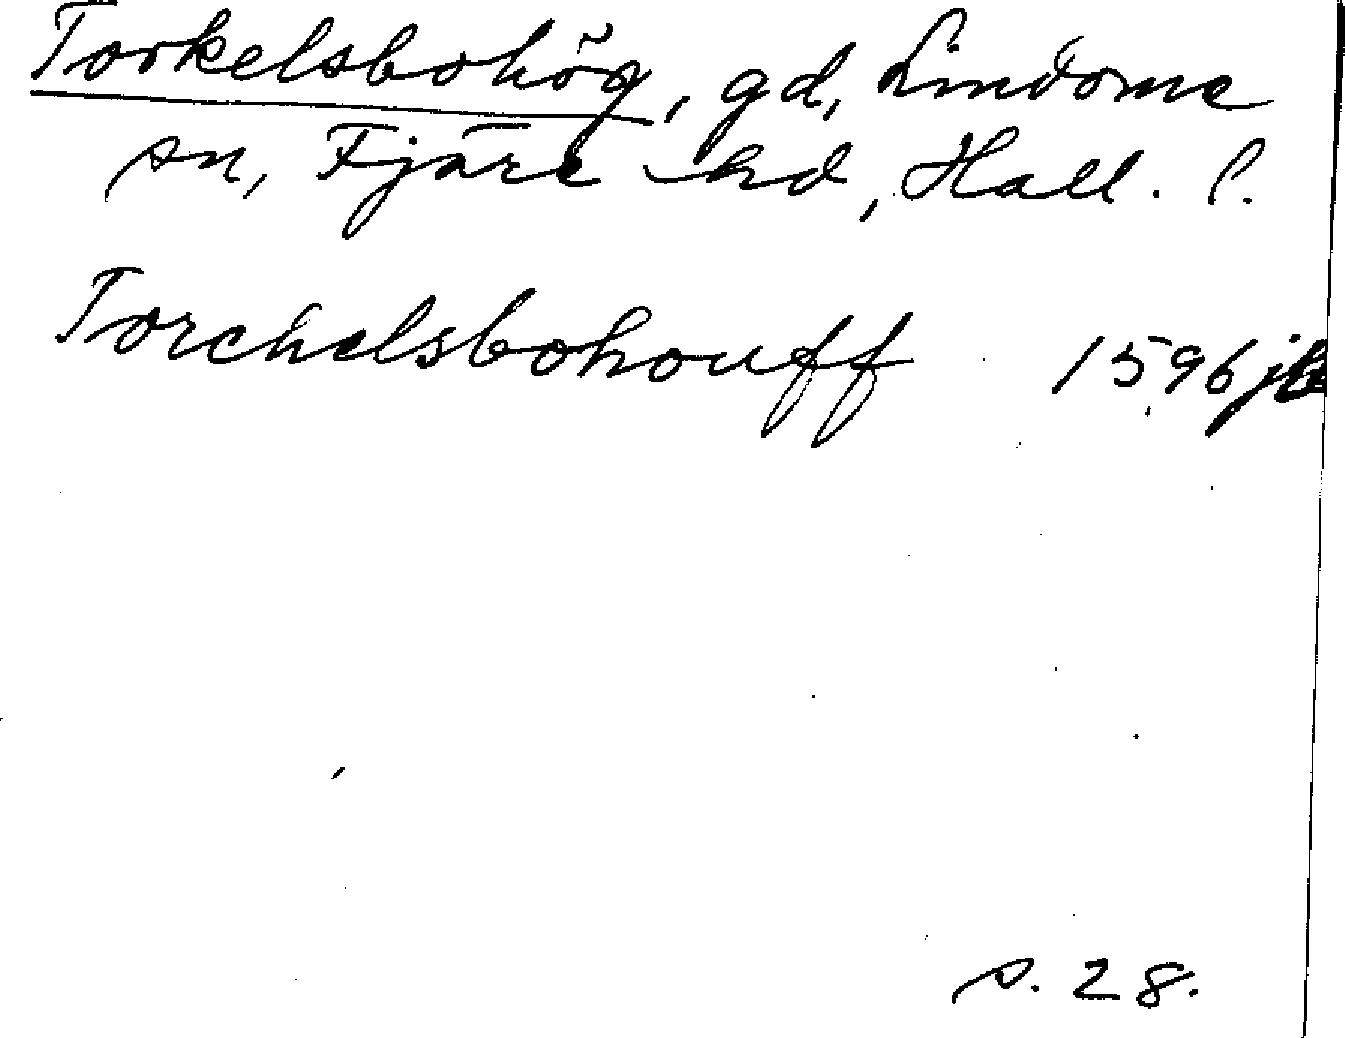 Torkelsbohög, gd, Lindome
sn, Fjäre hd, Hall. l.
Torchelsbohouff 1596 jb
s. 28.